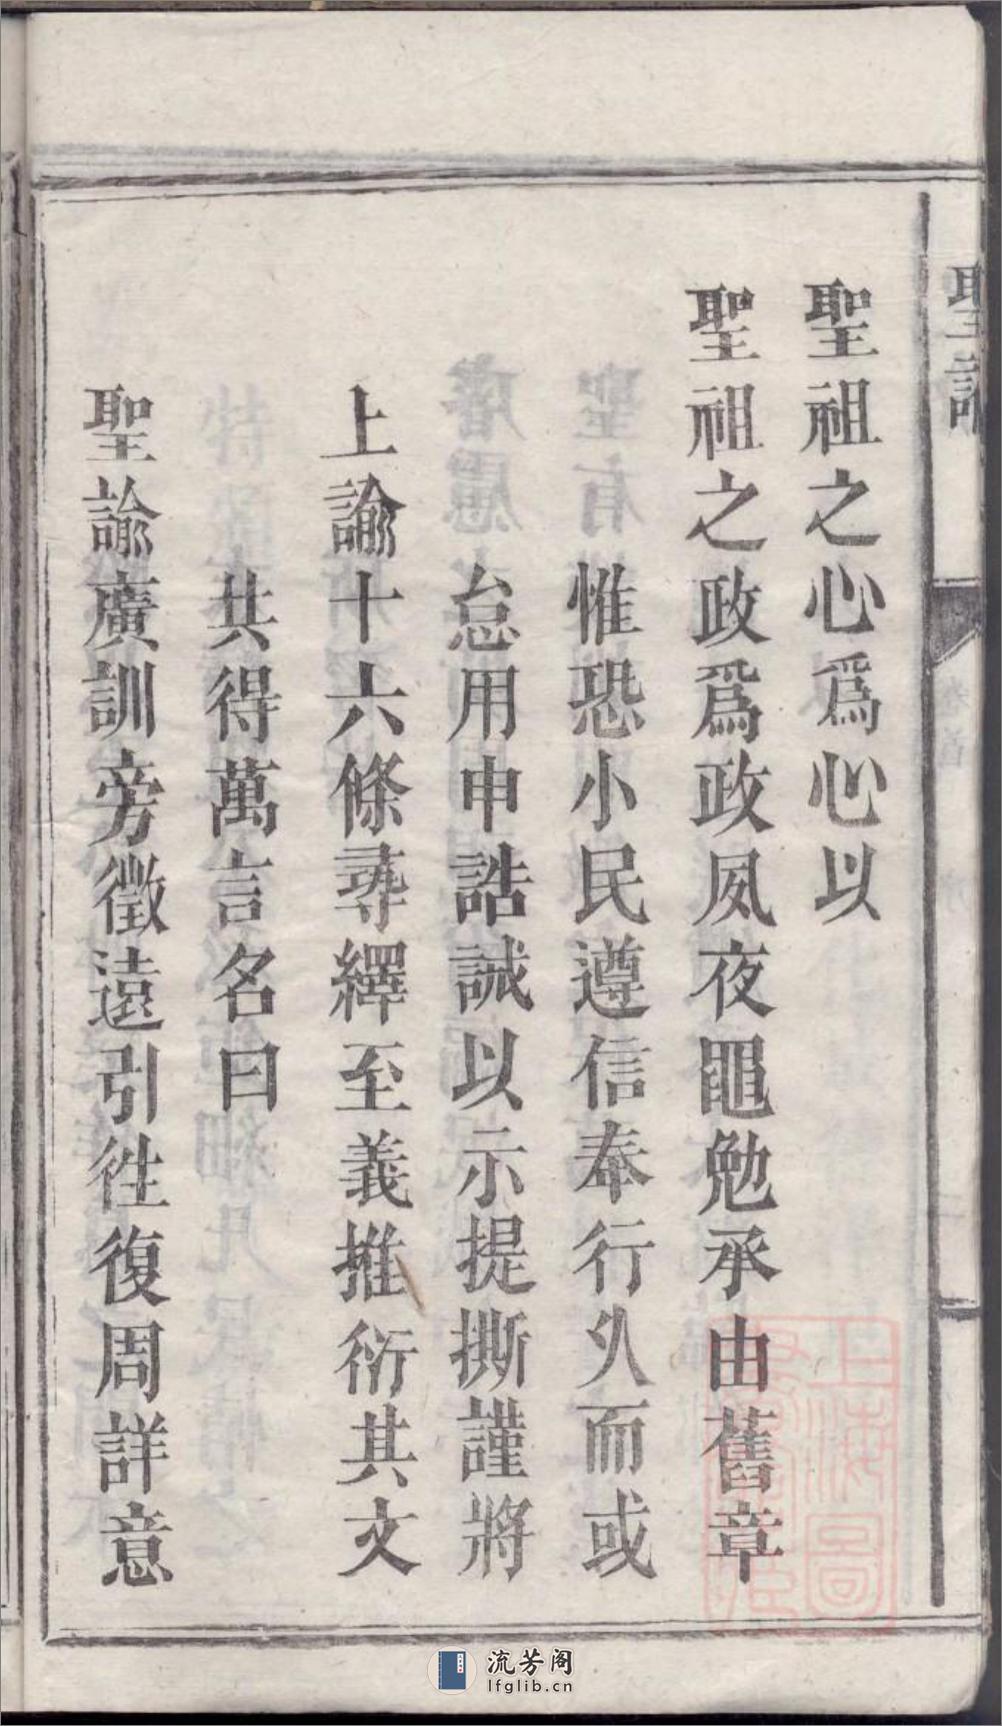 聖祖之心爲心以
聖祖之政爲政夙夜黽勉承由舊章
惟恐小民遵信奉行久而或
怠用申誥誡以示提撕謹將
上諭十六條尋繹至義推衍其文
共得萬言名曰
聖諭廣訓旁徵遠引徃復周詳意
流芳阁
lfglib.cn